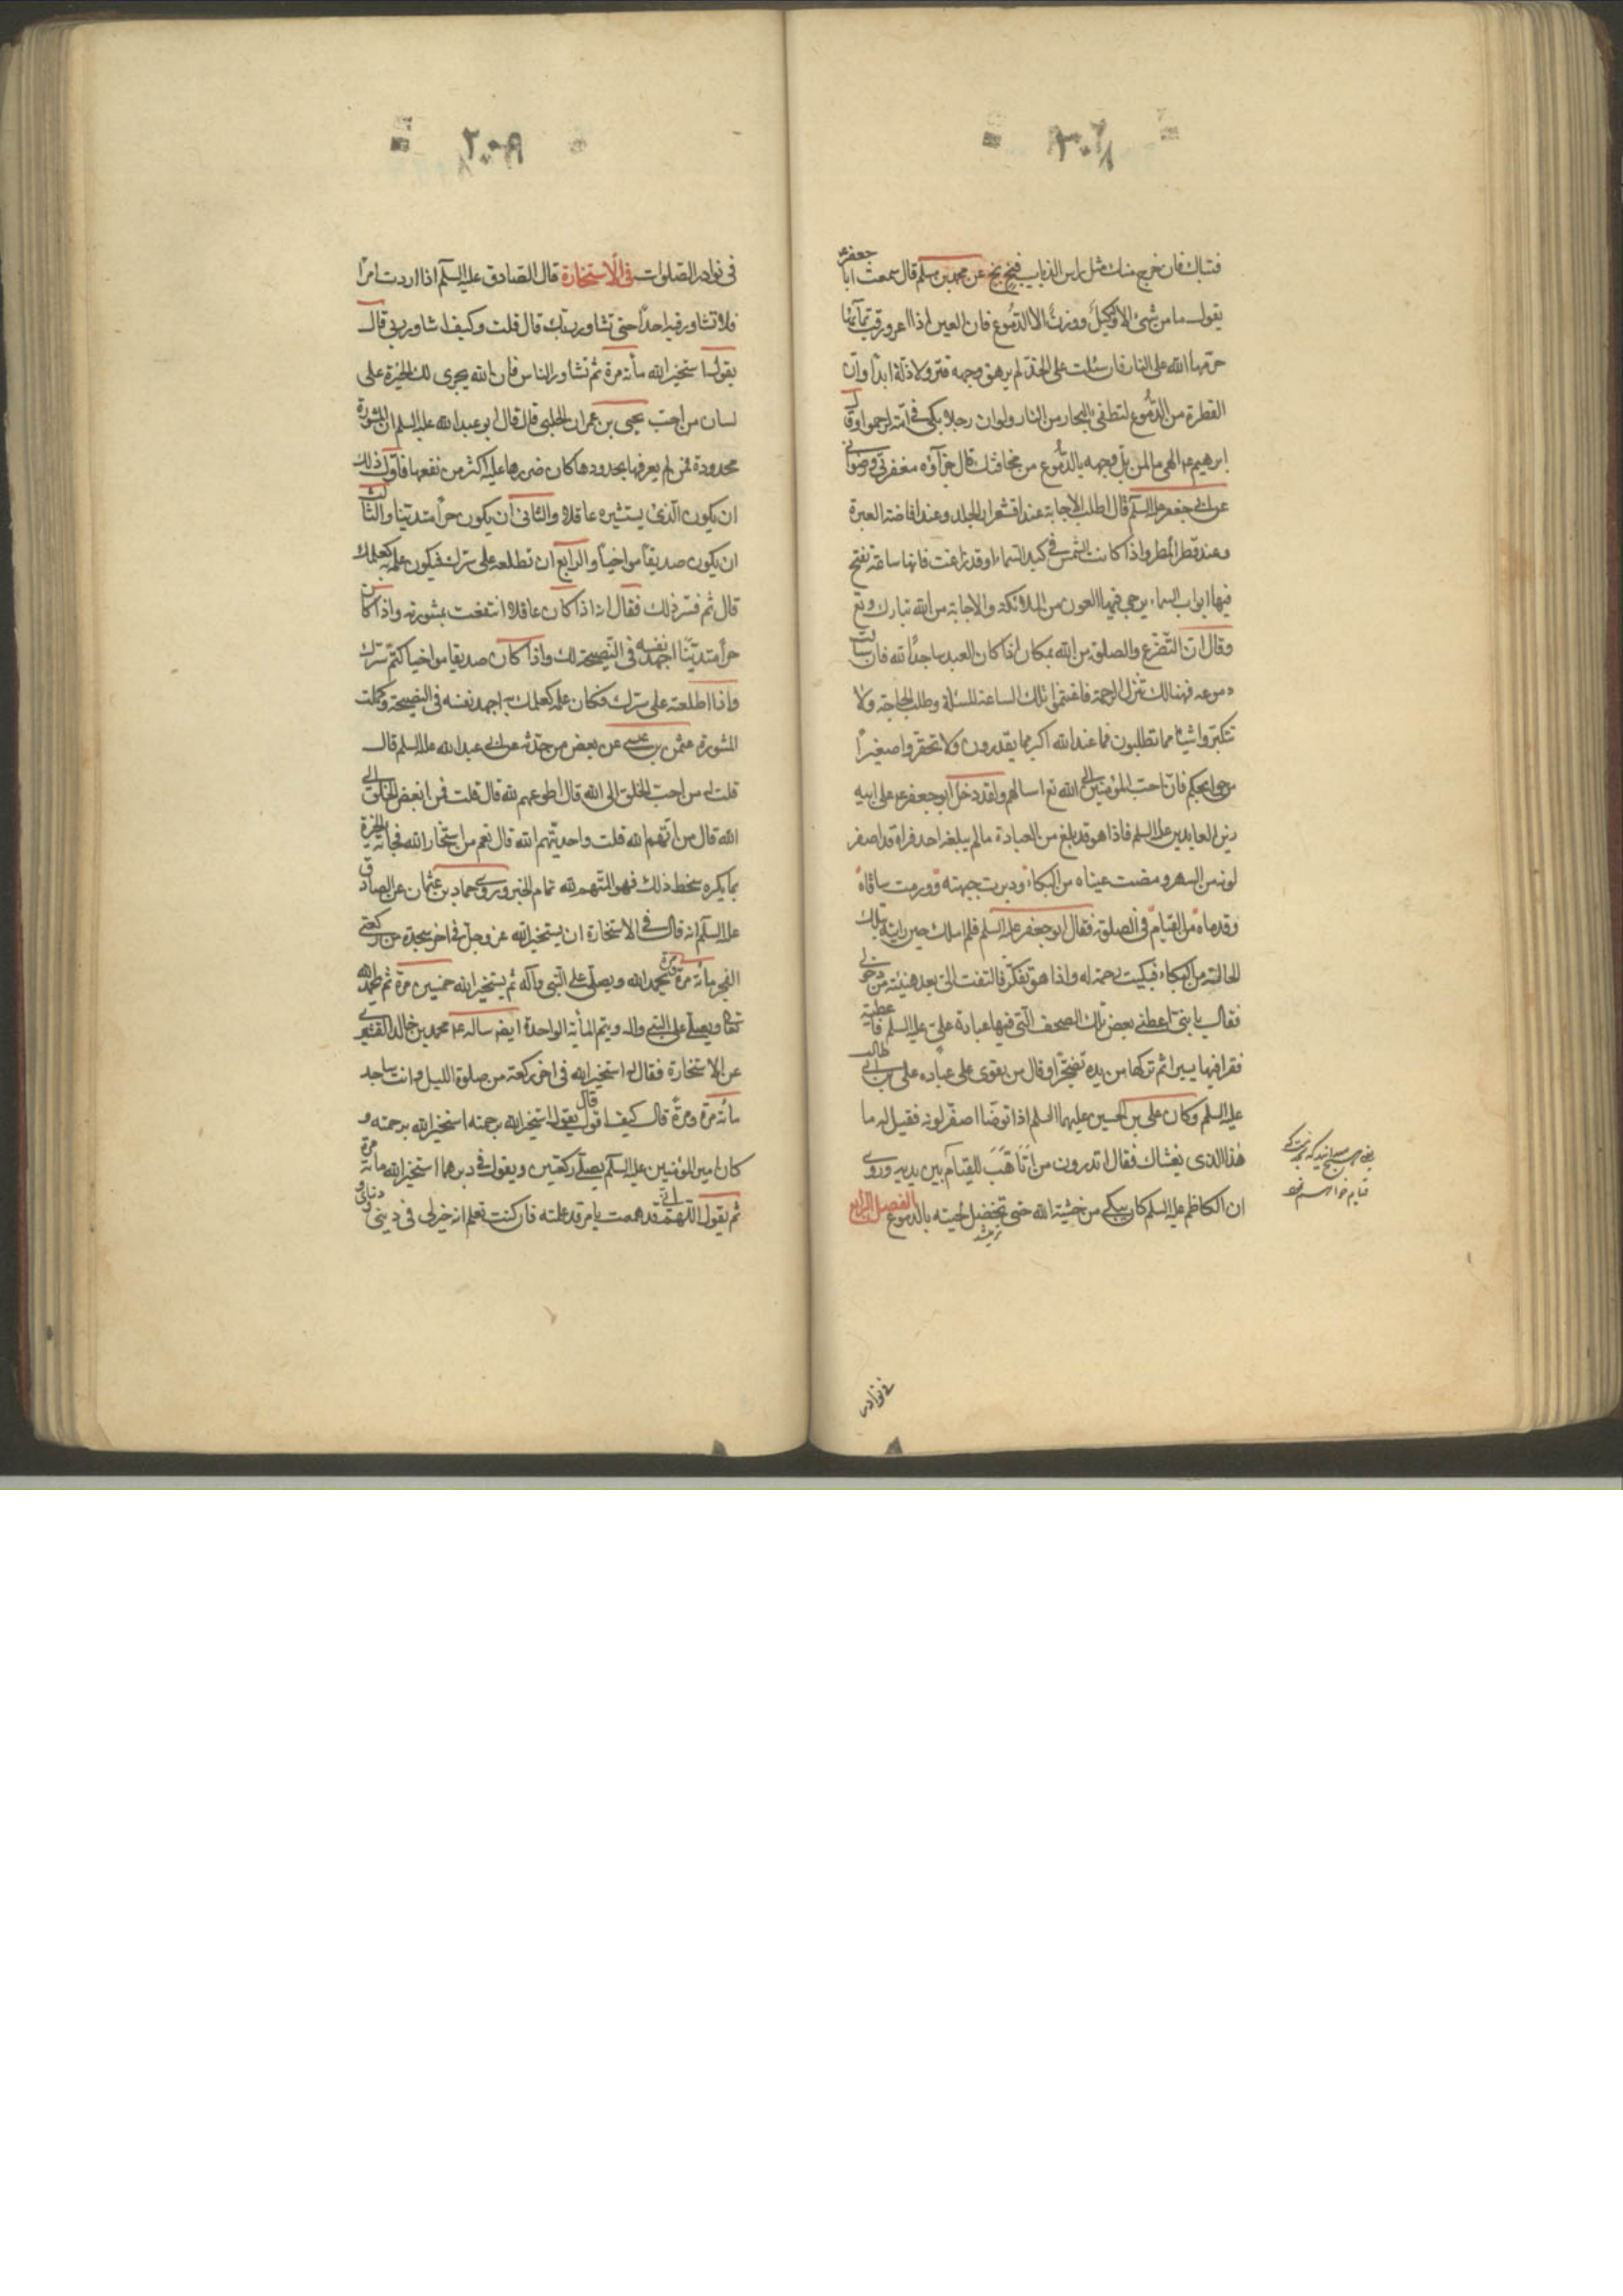 ٣٠٨
فتباك فان خرج منك مثل راس الذباب فبخ بخ عن محمد بن مسلم قال سمعت ابا جعفر ع
يقول ما من شئ الا وله كيل ووزن الا الدموع فان العين اذا اغرورقت بمائها
حرمها الله على النار فان سالت على الخد لم يرهق وجهه قتر ولا ذلة ابدا وان
القطرة من الدموع لتطفئ البحار من النار ولو ان رجلا بكى في امة لرحموا وقال
ابرهيم ع الهي ما لمن بل وجهه بالدموع من مخافتك قال جزاؤه مغفرتي ورضواني
عن ابي جعفر عليه السلم قال اطلب الاجابة عند اقشعرار الجلد وعند افاضة العبرة
وعند قطر المطر واذا كانت الشمس في كبد السماء او قد زاغت فانها ساعة تفتح
فيها ابواب السماء يرجى فيها العون من الملائكة والاجابة من الله تبارك وتع
وقال ان التضرع والصلوة من الله بمكان اذا كان العبد ساجدا لله فان سالت
دموعه فهنالك تنزل الرحمة فاغتنموا تلك الساعة المسئلة وطلب الحاجة ولا
تتكثروا شيئا مما تطلبون فما عند الله اكبر مما يقدرون ولا تحقروا صغيرا
من حوايجكم فان احب المؤمنين الى الله تع اسالهم ولقد دخل ابو جعفر ع على ابيه
زين العابدين عليه السلم فاذا هو قد بلغ من العبادة ما لم يبلغه احد فراه قد اصفر
لونه من السهر ورمضت عيناه من البكاء ودبرت جبهته وورمت ساقاه
وقدماه من القيام في الصلوة فقال ابو جعفر عليه السلم فلم املك حين رايته بتلك
الحالة من البكاء فبكيت رحمة له واذا هو يفكر فالتفت الى بعد هنيئة من دخولي
فقال يا بنى اعطنى بعض تلك الصحف التي فيها عبادة علي عليه السلم فاعطيته
فقرا فيها يسيرا ثم تركها من يده تضجرا وقال من يقوى على عباده علي بن ابي طالب
عليه السلم وكان علي بن الحسين عليهما السلم اذا توضا اصفر لونه فقيل له ما
هذا الذي يغشاك فقال اتدرون من اتاهب للقيام بين يديه وروى
ان الكاظم عليه السلم كان يبكي من خشية الله حتى تخضل لحيته بالدموع الفصل الرابع
تر ميشد
في نوادر
٣٠٩
في نوادر الصلوات في الاستخارة قال الصادق عليه السلم اذا اردت امرا
فلا تشاور فيه احدا حتى تشاور ربك قال قلت وكيف اشاور ربي قال
يقول استخير الله مأة مرة ثم تشاور الناس فان الله يجرى لك الخيرة على
لسان من احب يحيى بن عمران الحلبي قال قال ابو عبد الله عليه السلم ان المشورة
محدودة فمن لم يعرفها بحدودها كان ضررها عليه اكثر من نفعها فاول ذلك
ان يكون الذي يستشيره عاقلا والثاني ان يكون حرا متدينا والثالث
ان يكون صديقا مواخيا والرابع ان تطلعه على سرك فيكون علمه به كعلمك
قال ثم فسر ذلك فقال انه اذا كان عاقلا انتفعت بمشورته واذا كان
حرا متدينا اجهد نفسه في النصيحة لك واذا كان صديقا مواخيا كتم سرك
واذا اطلعته على سرك فكان علمه كعلمك به اجهد نفسه في النصيحة وكملت
المشورة عثمن بن عيسى عن بعض من حدثه عن ابي عبد الله عليه السلم قال
قلت له من احب الخلق الى الله قال اطوعهم لله قال قلت فمن ابغض الخلق الى
الله قال من اتهم الله قلت واحد يتهم الله قال نعم من استخار الله فجاته الخيرة
بما يكره سخط ذلك فهو المتهم لله تمام الخبر وروى حماد بن عثمان عن الصادق
عليه السلم انه قال في الاستخارة ان يستخير الله عز وجل في اخر سجدة من ركعتي
الفجر مأة مرة ومرة يحمد الله ويصلي على النبي واله ثم يستخير الله خمسين مرة ثم يحمد الله
تعالى ويصلي على النبي واله ويتم المأية الواحدة ايضه ساله ع محمد بن خالد القسرى
عن الاستخارة فقال له استخير الله في اخر ركعة من صلوة الليل وانت ساجد
مأة مرة ومرة قال كيف اقول قال يقول استخير الله برحمته استخير الله برحمته و
كان امير المؤمنين عليه السلم يصلي ركعتين ويقول في دبرهما استخير الله مأة مرة
ثم يقول اللهم اني قد هممت بامر قد علمته فان كنت تعلم انه خير لي في ديني ودنياي و